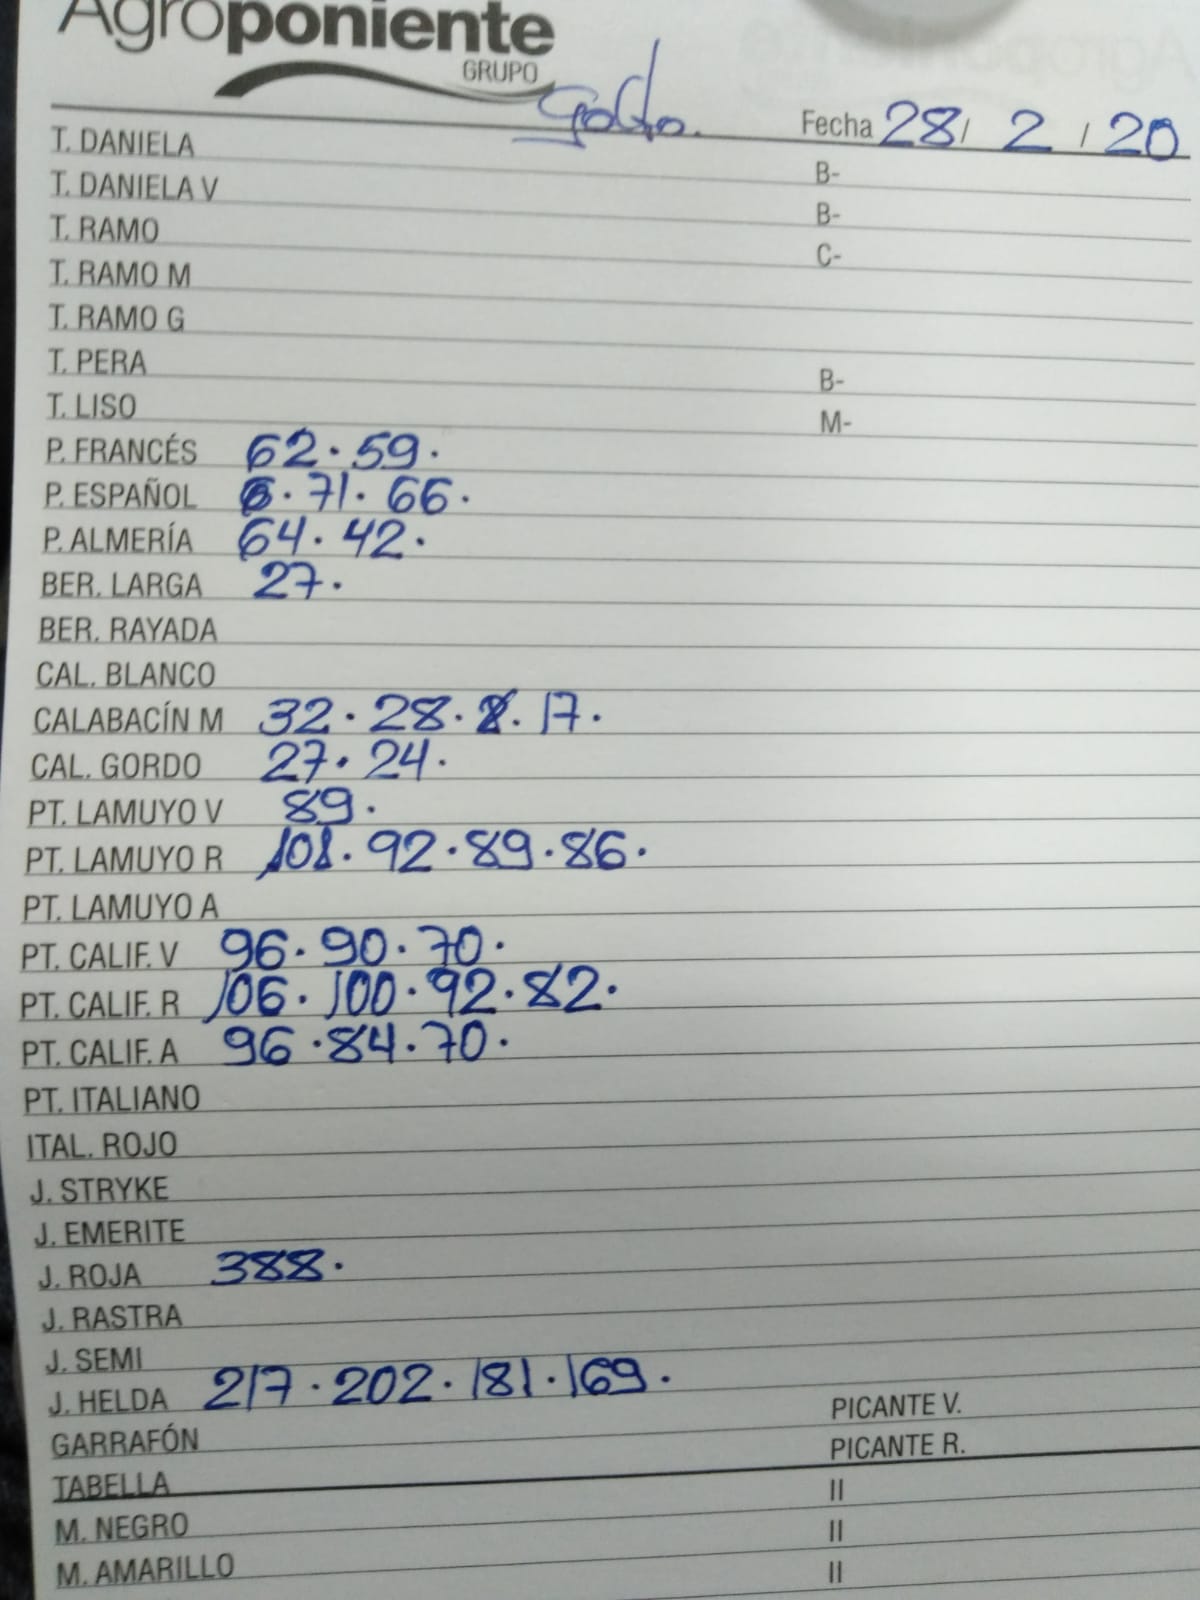 Agroponiente
GRUPO
Fecha 28/ 2 / 20
T. DANIELA B-
T. DANIELA V B-
T. RAMO C-
T. RAMO M
T. RAMO G
T. PERA B-
T. LISO M-
P. FRANCÉS 62. 59.
P. ESPAÑOL 71. 66.
P. ALMERÍA 64. 42.
BER. LARGA 27.
BER. RAYADA
CAL. BLANCO
CALABACÍN M 32. 28. 17.
CAL. GORDO 27. 24.
PT. LAMUYO V 89.
PT. LAMUYO R 92. 89. 86.
PT. LAMUYO A
PT. CALIF. V 96. 90. 70.
PT. CALIF. R 106. 100. 92. 82.
PT. CALIF. A 96. 84. 70.
PT. ITALIANO
ITAL. ROJO
J. STRYKE
J. EMERITE
J. ROJA 388.
J. RASTRA
J. SEMI
J. HELDA 217. 202. 181. 169.
GARRAFÓN PICANTE V.
TABELLA PICANTE R.
M. NEGRO II
M. AMARILLO II
II